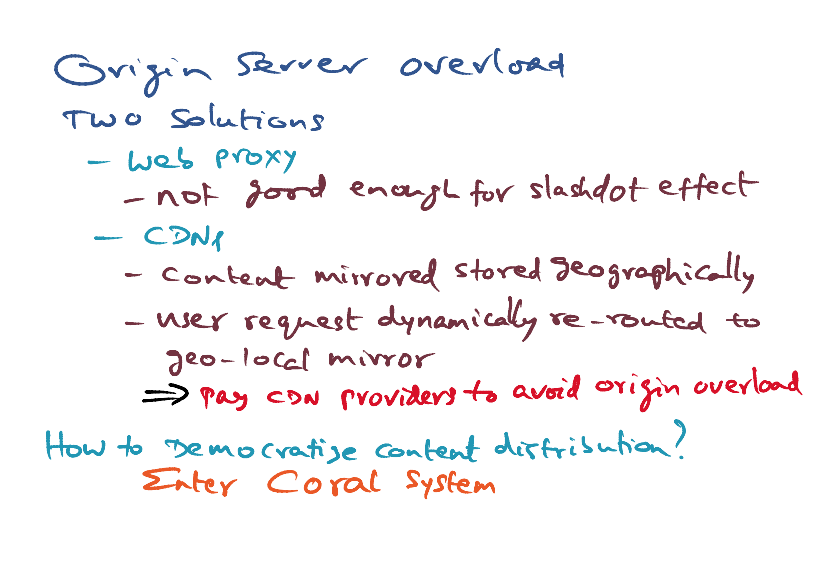 Origin Server overload
Two Solutions
- Web proxy
- not good enough for slashdot effect
- CDNs
- content mirrored stored geographically
- user request dynamically re-routed to
geo-local mirror
⇒ pay CDN providers to avoid origin overload
How to Democratize content distribution?
Enter Coral System